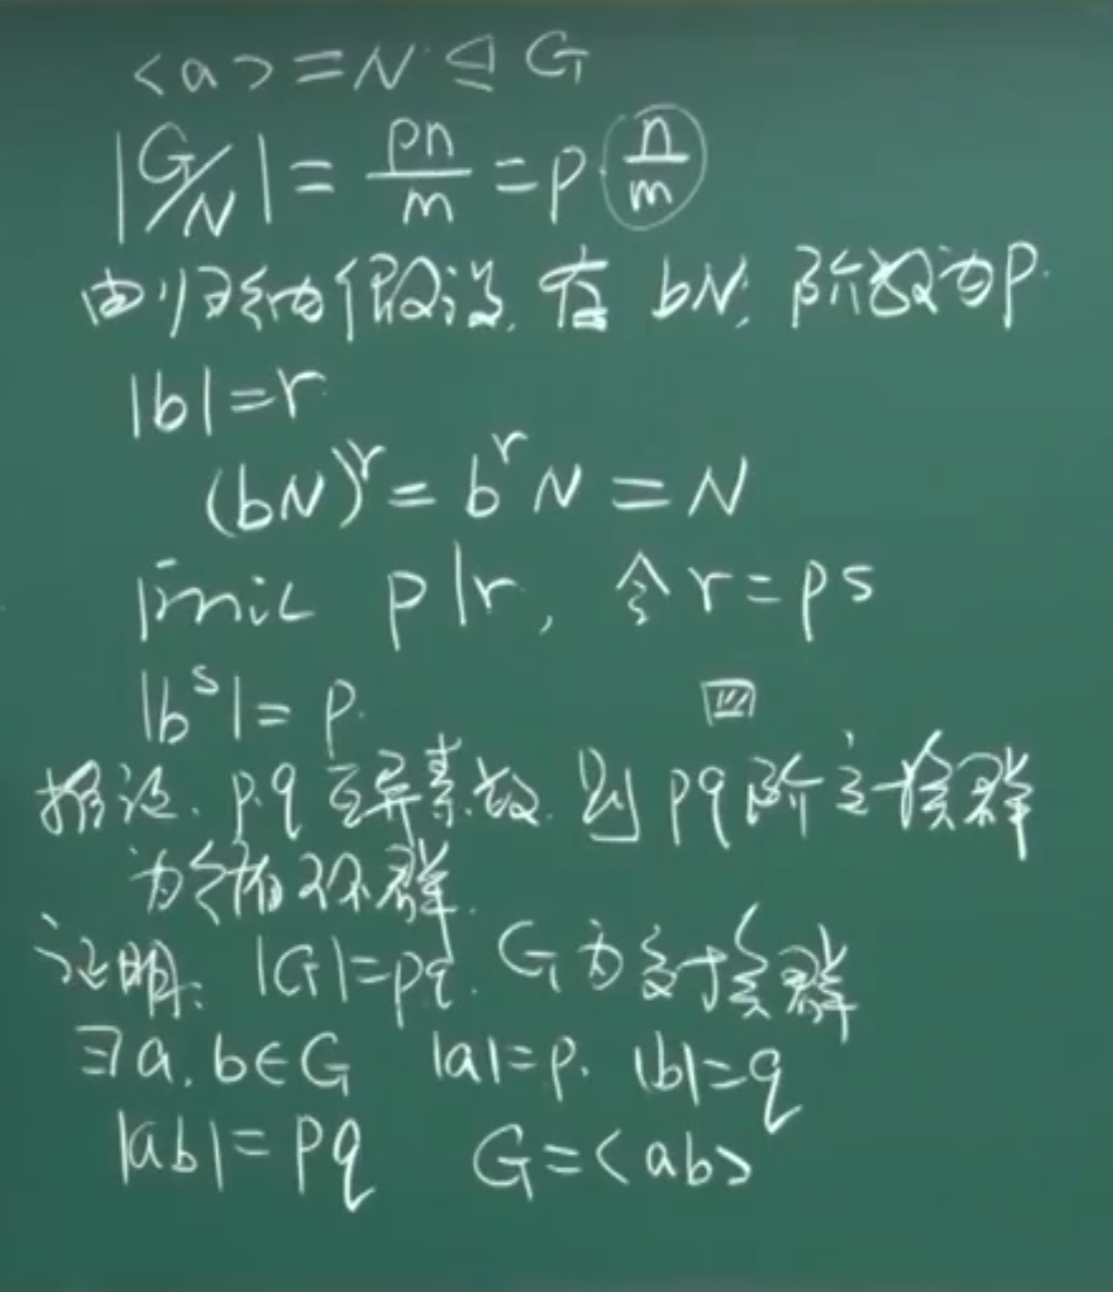 <a> = N ⊴ G
|G/N| = pn/m = p·n/m
由归纳假设, 有 bN, 阶数为p.
|b|=r
(bN)^r = b^r N = N
p|r, 令r=ps
|b^s| = p.
推论. p.q 互异素数. 则 pq 阶交换群
为循环群.
证明: |G|=pq. G为交换群
∃a, b∈G |a|=p. |b|=q
|ab|=pq G=<ab>